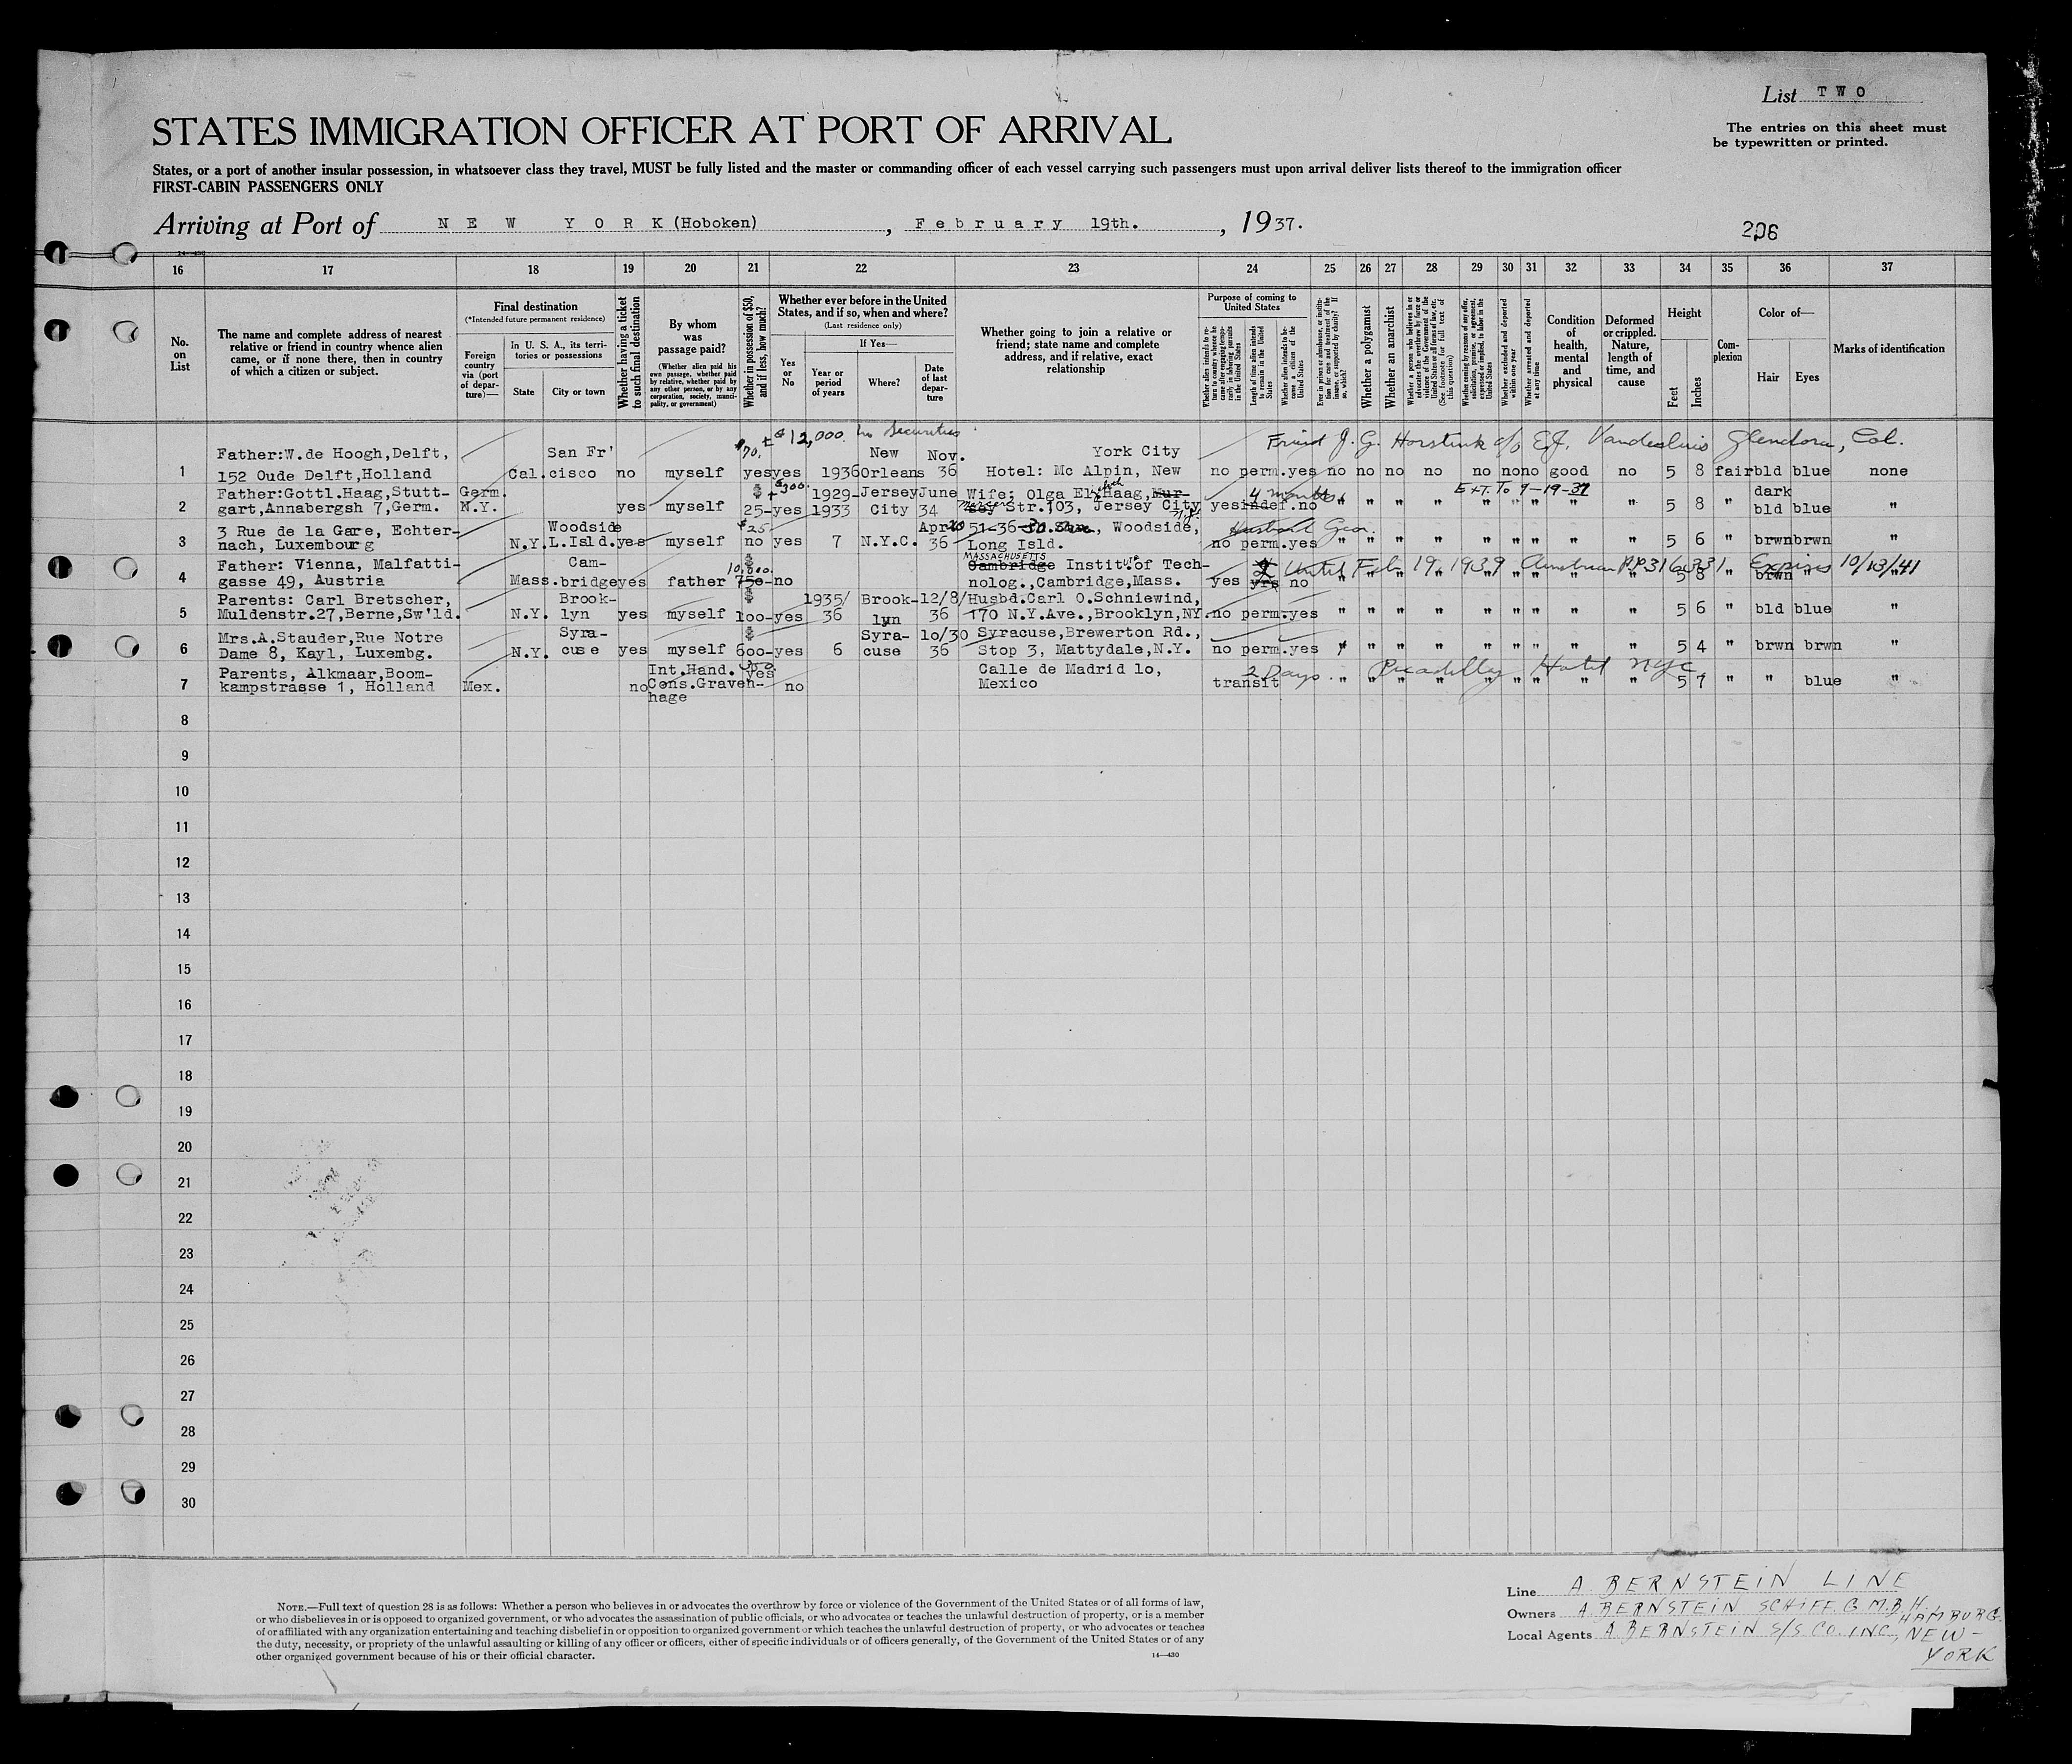 List TWO
STATES IMMIGRATION OFFICER AT PORT OF ARRIVAL
The entries on this sheet must
be typewritten or printed.
States, or a port of another insular possession, in whatsoever class they travel, MUST be fully listed and the master or commanding officer of each vessel carrying such passengers must upon arrival deliver lists thereof to the immigration officer
FIRST-CABIN PASSENGERS ONLY
Arriving at Port of NEW YORK (Hoboken), February 19th., 1937.
206
16 17 18 19 20 21 22 23 24 25 26 27 28 29 30 31 32 33 34 35 36 37
No.
on
List
The name and complete address of nearest
relative or friend in country whence alien
came, or if none there, then in country
of which a citizen or subject.
Final destination
(*Intended future permanent residence)
Foreign
country
via (port
of depar-
ture)—
In U. S. A., its terri-
tories or possessions
State
City or town
Whether having a ticket
to such final destination
By whom
was
passage paid?
(Whether alien paid his
own passage, whether paid
by relative, whether paid by
any other person, or by any
corporation, society, munici-
pality, or government)
Whether in possession of $50,
and if less, how much?
Whether ever before in the United
States, and if so, when and where?
(Last residence only)
If Yes—
Yes
or
No
Year or
period
of years
Where?
Date
of last
depar-
ture
Whether going to join a relative or
friend; state name and complete
address, and if relative, exact
relationship
Purpose of coming to
United States
Length of time alien intends
to remain in the United
States
Whether alien intends to be-
come a citizen of the
United States
Whether a polygamist
Whether an anarchist
Whether excluded and deported
within one year
Whether arrested and deported
at any time
Condition
of
health,
mental
and
physical
Deformed
or crippled.
Nature,
length of
time, and
cause
Height
Feet
Inches
Com-
plexion
Color of—
Hair
Eyes
Marks of identification
$70. + $12,000. in Securities
Friend J. G. Horstink c/o E.J. Vandersluis Glendora, Cal.
Father:W.de Hoogh,Delft, San Fr' New Nov. York City
1 152 Oude Delft,Holland Cal. cisco no myself yes yes 1936 Orleans 36 Hotel: Mc Alpin, New no perm. yes no no no no no no no good no 5 8 fair bld blue none
Father:Gottl.Haag,Stutt- Germ. $ + $300. 1929- Jersey June Wife: Olga El. Haag, Mur- 4 months EXT. TO 9-19-37 dark
2 gart,Annabergsh 7,Germ. N.Y. yes myself 25- yes 1933 City 34 Str.103, Jersey City yes indef. no " " " " " " " " " 5 8 " bld blue "
3 Rue de la Gare, Echter- Woodside $25 Apr 51-36 Woodside, Husband Geo.
3 nach, Luxembourg N.Y. L.Isld. yes myself no yes 7 N.Y.C. 36 Long Isld. no perm. yes " " " " " " " " " 5 6 " brwn brwn "
Father: Vienna, Malfatti- Cam- 10,000. $ MASSACHUSETTS Cambridge Institute of Tech- 2 Until Feb 19, 1939 Austrian P.P. Expires 10/13/41
4 gasse 49, Austria Mass. bridge yes father 750- no nolog.,Cambridge,Mass. yes yrs no 5 8 " brwn " "
Parents: Carl Bretscher, Brook- $ 1935/ Brook- 12/8/ Husbd.Carl O.Schniewind,
5 Muldenstr.27,Berne,Sw'ld. N.Y. lyn yes myself 100- yes 36 lyn 36 170 N.Y.Ave.,Brooklyn,NY. no perm. yes " " " " " " " " " 5 6 " bld blue "
Mrs.A.Stauder,Rue Notre Syra- $ Syra- 10/30 Syracuse,Brewerton Rd.,
6 Dame 8, Kayl, Luxembg. N.Y. cuse yes myself 600- yes 6 cuse 36 Stop 3, Mattydale,N.Y. no perm. yes " " " " " " " " " 5 4 " brwn brwn "
Parents, Alkmaar,Boom- Int.Hand. yes Calle de Madrid 10, 2 Days. Piccadilly Hotel NYC
7 kampstrasse 1, Holland Mex. no Cons.Graven- no Mexico transit " " " " " " " " " 5 7 " " blue "
hage
8
9
10
11
12
13
14
15
16
17
18
19
20
21
22
23
24
25
26
27
28
29
30
NOTE.—Full text of question 28 is as follows: Whether a person who believes in or advocates the overthrow by force or violence of the Government of the United States or of all forms of law,
or who disbelieves in or is opposed to organized government, or who advocates the assassination of public officials, or who advocates or teaches the unlawful destruction of property, or is a member
of or affiliated with any organization entertaining and teaching disbelief in or opposition to organized government or which teaches the unlawful destruction of property, or who advocates or teaches
the duty, necessity, or propriety of the unlawful assaulting or killing of any officer or officers, either of specific individuals or of officers generally, of the Government of the United States or of any
other organized government because of his or their official character.
14—430
Line A. BERNSTEIN LINE
Owners A. BERNSTEIN SCHIFF.G.M.B.H., HAMBURG.
Local Agents A BERNSTEIN S/S CO. INC., NEW-
YORK